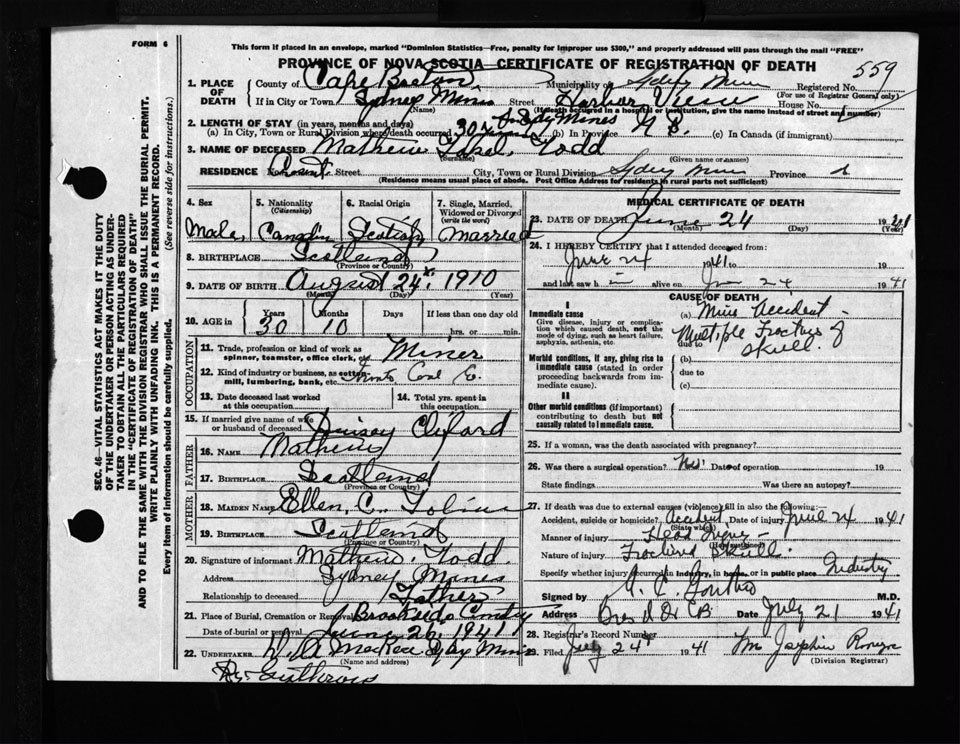 FORM 6
This form if placed in an envelope, marked "Dominion Statistics—Free, penalty for improper use $300," and properly addressed will pass through the mail "FREE"
PROVINCE OF NOVA SCOTIA—CERTIFICATE OF REGISTRATION OF DEATH
559
1. PLACE OF DEATH County of Cape Breton Municipality of Sydney Mines Registered No.
(For use of Registrar General only)
If in City or Town Sydney Mines Street Harbor View House No.
(Name) (If death occurred in a hospital or institution, give the name instead of street and number)
2. LENGTH OF STAY (in years, months and days)
(a) In City, Town or Rural Division where death occurred 30 years (b) In Province (c) In Canada (if immigrant)
3. NAME OF DECEASED Mathew Todd
(Surname) (Given name or names)
RESIDENCE Street City, Town or Rural Division Sydney Mines Province
(Residence means usual place of abode. Post Office Address for residents in rural parts not sufficient)
4. Sex Male
5. Nationality (Citizenship) Canadian
6. Racial Origin Scotish
7. Single, Married, Widowed or Divorced (write the word) Married
8. BIRTHPLACE Scotland
(Province or Country)
9. DATE OF BIRTH August 24 1910
(Month) (Day) (Year)
10. AGE in Years 30 Months 10 Days If less than one day old hrs. or min.
OCCUPATION
11. Trade, profession or kind of work as spinner, teamster, office clerk, etc. Miner
12. Kind of industry or business, as cotton-mill, lumbering, bank, etc. Coal Co.
13. Date deceased last worked at this occupation
14. Total yrs. spent in this occupation
15. If married give name of wife or husband of deceased Cliford
FATHER
16. NAME Mathew
17. BIRTHPLACE Scotland
(Province or Country)
MOTHER
18. MAIDEN NAME Ellen C.
19. BIRTHPLACE Scotland
(Province or Country)
20. Signature of informant Mathew Todd
Address Sydney Mines
Relationship to deceased Father
21. Place of Burial, Cremation or Removal Brookside Cemetery
Date of burial or removal June 26, 1941
22. UNDERTAKER
(Name and address)
MEDICAL CERTIFICATE OF DEATH
23. DATE OF DEATH June 24
(Month) (Day) (Year)
24. I HEREBY CERTIFY that I attended deceased from:
June 24 1941 to 19
and last saw h alive on 24 1941
CAUSE OF DEATH
I
Immediate cause
Give disease, injury or complication which caused death, not the mode of dying, such as heart failure, asphyxia, asthenia, etc.
(a) Mine Accident
due to Multiple Fractures of Skull.
Morbid conditions, if any, giving rise to immediate cause (stated in order proceeding backwards from immediate cause).
(b)
due to
(c)
II
Other morbid conditions (if important) contributing to death but not causally related to immediate cause.
25. If a woman, was the death associated with pregnancy?
26. Was there a surgical operation? No. Date of operation 19
State findings Was there an autopsy?
27. If death was due to external causes (violence) fill in also the following:—
Accident, suicide or homicide? Accident Date of injury June 24 1941
(State which)
Manner of injury Head Injury
Nature of injury Fractured Skull.
Specify whether injury occurred in industry, in home, or in public place Industry
Signed by M.D.
Address Date July 21 1941
28. Registrar's Record Number
29. Filed July 24 1941
(Division Registrar)
SEC. 46—VITAL STATISTICS ACT MAKES IT THE DUTY OF THE UNDERTAKER OR PERSON ACTING AS UNDERTAKER TO OBTAIN ALL THE PARTICULARS REQUIRED IN THE "CERTIFICATE OF REGISTRATION OF DEATH" AND TO FILE THE SAME WITH THE DIVISION REGISTRAR WHO SHALL ISSUE THE BURIAL PERMIT.
WRITE PLAINLY WITH UNFADING INK. THIS IS A PERMANENT RECORD.
Every item of information should be carefully supplied. (See reverse side for instructions.)